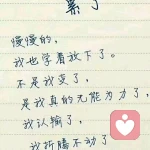 累了
慢慢的，
我也学着放下了。
不是我变了，
是我真的无能为力了，
我认输了，
我折腾不动了